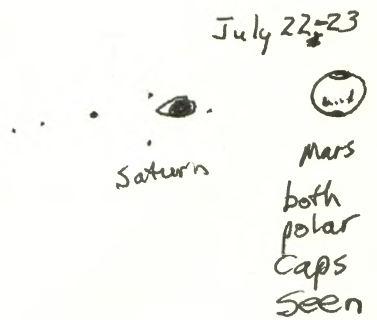 July 22-23
Saturn
Mars
both
polar
caps
seen